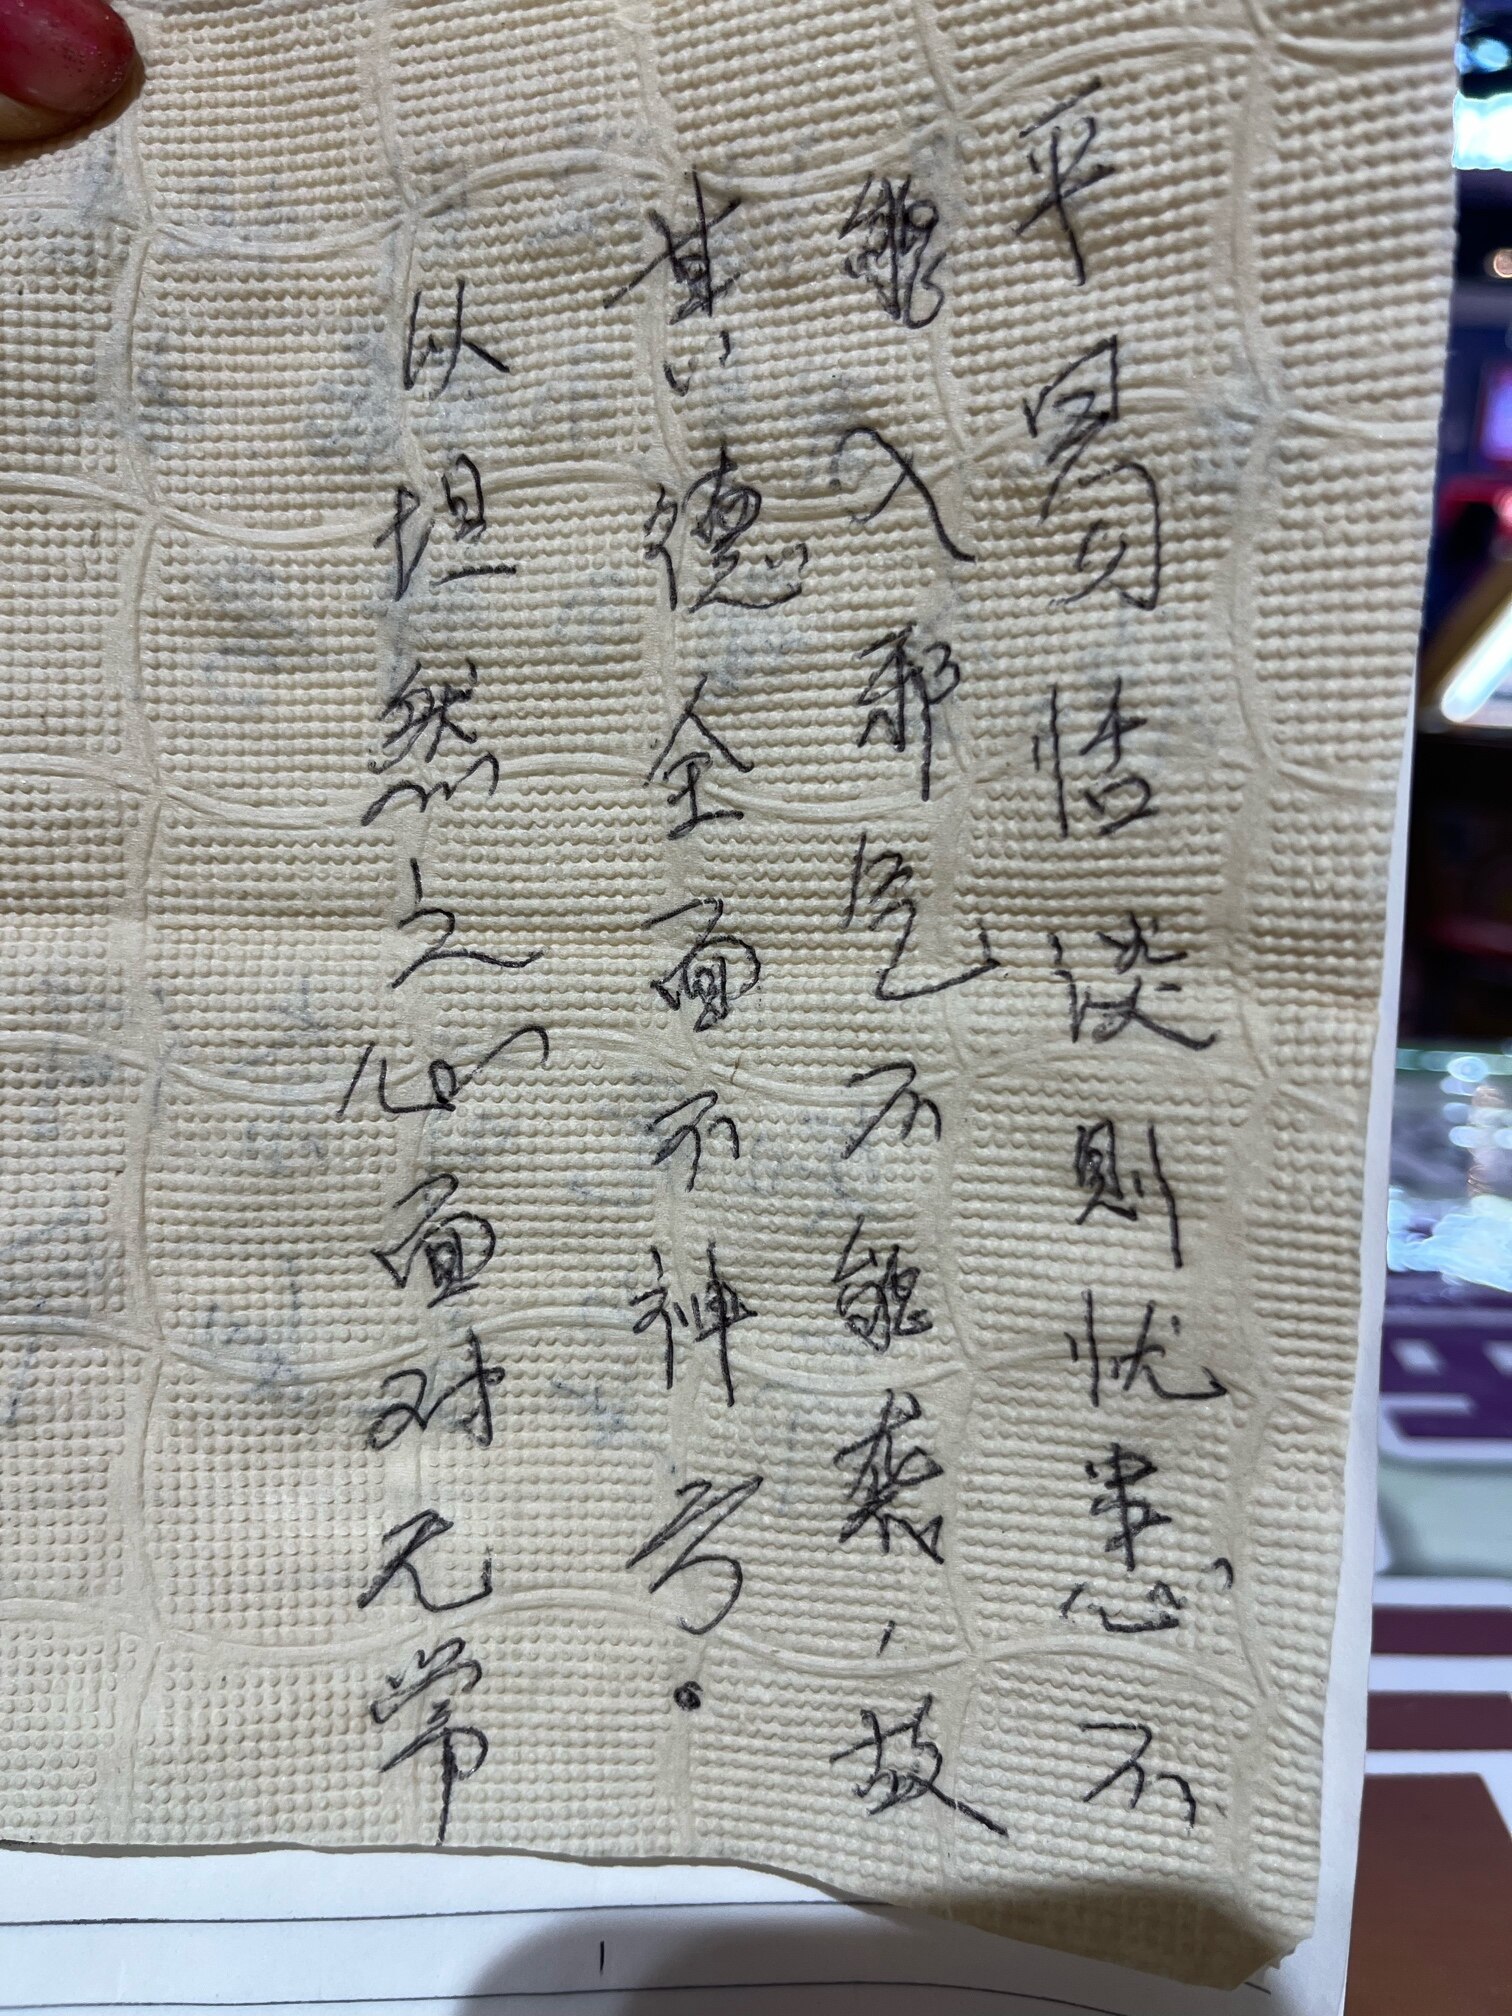 平易恬淡則忧患不
能入邪气不能袭，故
其德全面不神亏。
以坦然之心面对无常